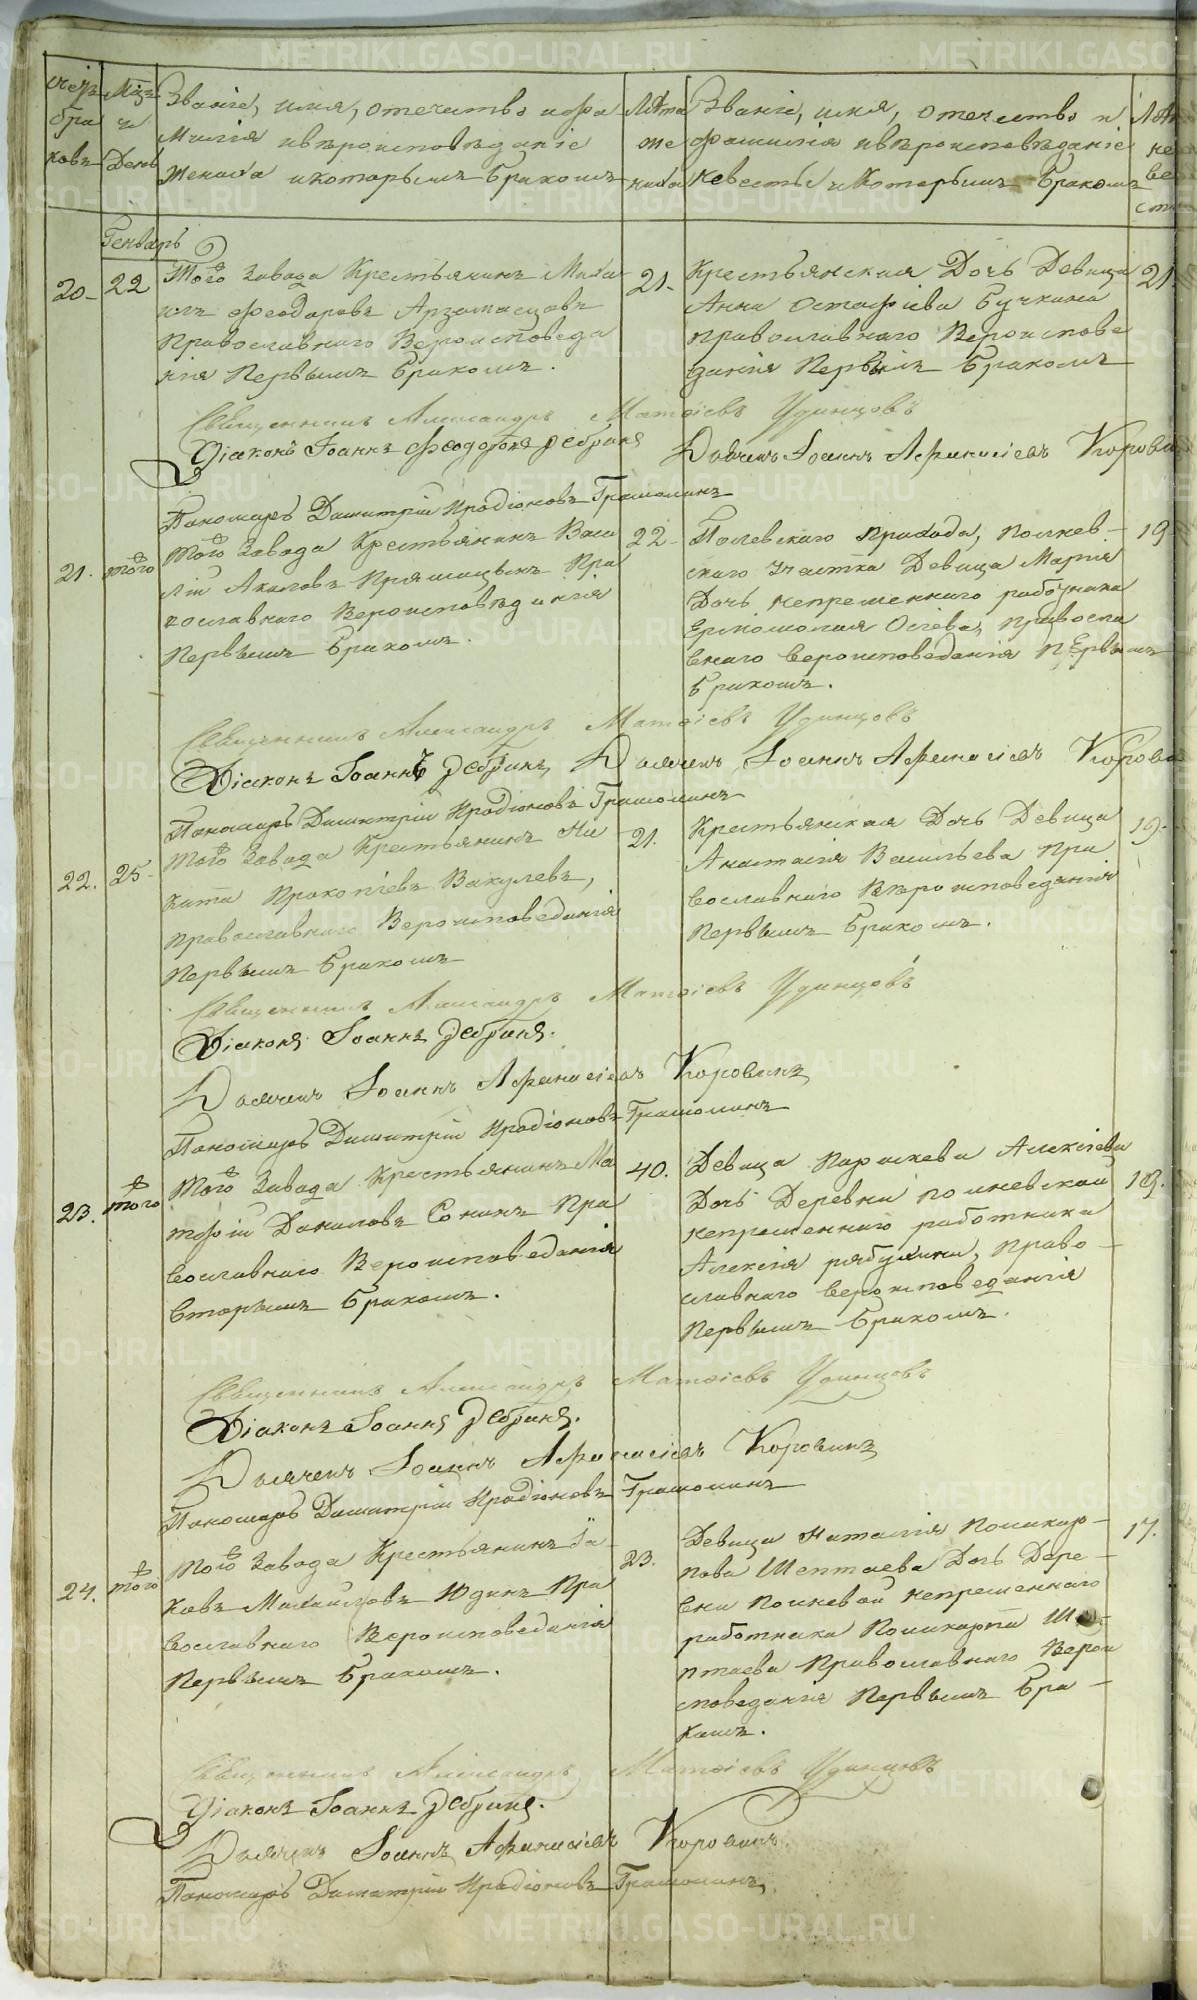 счетъ браковъ
Мцъ и День
Званіе, имя, отечество и фа
милія и вѣроисповѣданіе
жениха и которымъ бракомъ
Лѣта жениха
Званіе, имя, отечество и
фамилія и вѣроисповѣданіе
невесты и Которымъ бракомъ
Лѣ не ве ст
Генварь
20-
22
Того Завода Крестьянинъ Миха
илъ Феодоровъ Арзамасцовъ
православнаго Вероисповеда
нія Первымъ бракомъ.
21.
Крестьянская Дочь Девица
Анна Остафіева Бучкина
православнаго Вероиспове
данія Первымъ бракомъ
21.
Священникъ Александръ Матѳіевъ Удинцовъ
Діаконъ Іоаннъ Феодоровъ Дебринъ
Дьячекъ Іоаннъ Афанасіевъ Корови
Пономарь Димитрій Иродіоновъ Грамолинъ
21.
того
Того Завода Крестьянинъ Васи
лій Пря Пра
вославнаго Вероисповѣданія
Первымъ бракомъ.
22-
Полевскаго Прихода, Полнев-
скаго Участка Девица Марія
Дочь непременнаго работника
Ермолая Осіева, правосла
внаго вероисповеданія Первымъ
бракомъ.
19
Священникъ Александръ Матѳіевъ Удинцовъ
Діаконъ Іоаннъ Дебринъ
Дьячекъ Іоаннъ Афанасіевъ Корови
Пономарь Димитрій Иродіоновъ Грамолинъ
22.
25-
Того Завода Крестьянинъ Ни
кита Прокопіевъ Вакулевъ,
православнаго Вероисповеданія
Первымъ бракомъ
21.
Крестьянская Дочь Девица
Анастасія Васильева Пра
вославнаго Вѣроисповеданія
Первымъ бракомъ.
19.
Священникъ Александръ Матѳіевъ Удинцовъ
Діаконъ Іоаннъ Дебринъ.
Дьячекъ Іоаннъ Афанасіевъ Коровинъ
Пономарь Димитрій Иродіоновъ Грамолинъ
23.
того
Того Завода Крестьянинъ Ма
тфій Даниловъ Сонинъ Пра
вославнаго Вероисповеданія
Вторымъ бракомъ.
40.
Девица Параскева Алексіева
Дочь Деревни полневскаи
непременнаго работника
Алексія рябухина, право-
славнаго вероисповеданія
Первымъ бракомъ.
19.
Священникъ Александръ Матѳіевъ Удинцовъ
Діаконъ Іоаннъ Дебринъ.
Дьячекъ Іоаннъ Афанасіевъ Коровинъ
Пономарь Димитрій Иродіоновъ Грамолинъ
24.
того
Того Завода Крестьянинъ Іа-
ковъ Михайловъ Юдинъ Пра
вославнаго Вероисповеданія
Первымъ бракомъ.
23.
Девица Наталія Поликар-
пова Шептаева Дочь Дере-
вни Полневой непременнаго
работника Поликарпа Ше-
птаева Православнаго Верои
споведанія Первымъ бра-
комъ.
17.
Священникъ Александръ Матѳіевъ Удинцовъ
Діаконъ Іоаннъ Дебринъ.
Дьячекъ Іоаннъ Афанасіевъ Коровинъ.
Пономарь Димитрій Иродіоновъ Грамолинъ